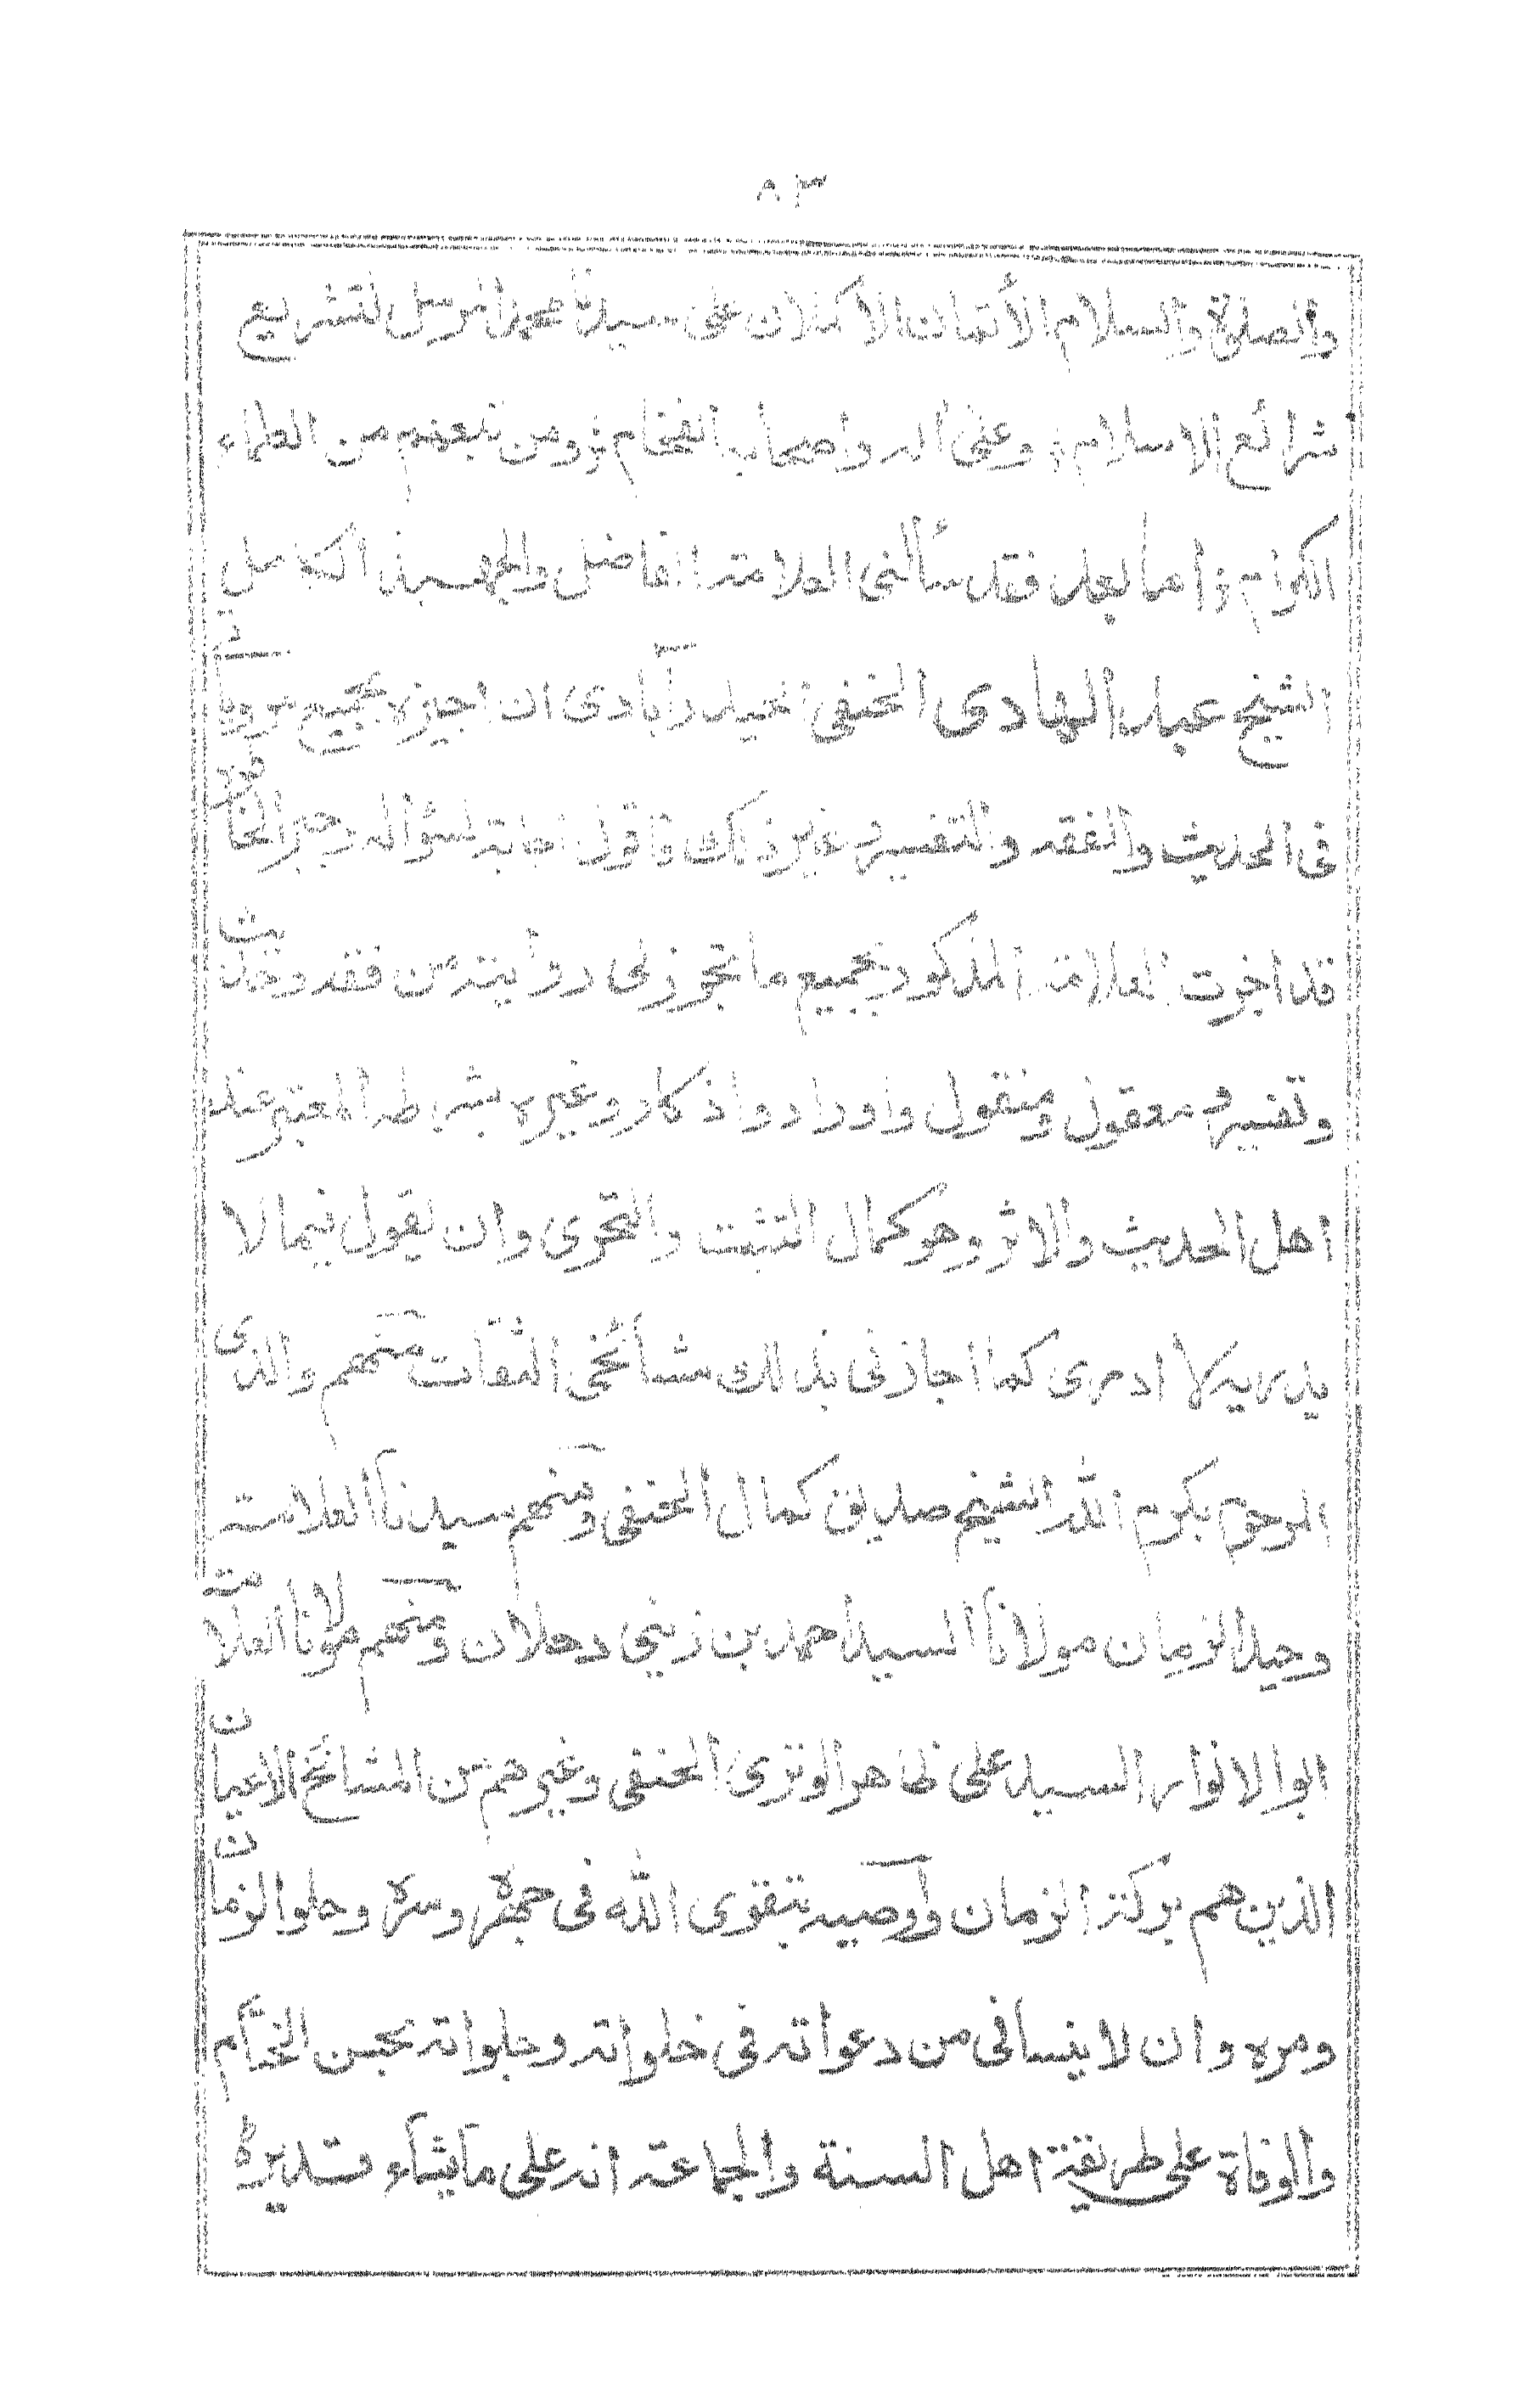 ٨٣
والصلوة والسلام الأتمان الاكملان على سيدنا محمد المرسل لتشريع
شرائع الاسلام؛ وعلى اله واصحابه الفخام؛ ومن تبعهم من العلماء
الكرام؛ اما بعد فقد سألنى العلامة الفاضل والجهبذ الكامل
الشيخ عبد الهادى الحنفى الحيدرآبادى ان اجيزه بجميع مروياتى
فى الحديث والفقه والتفسير وغير ذلك فاقول اجابة لسؤاله وجبرالخاطره
قد اجزت العلامة المذكور بجميع ما تجوز لى روايته من فقه وحديث
وتفسير ومعقول ومنقول واوراد واذكار وغيره بشرطه المعتبر عند
اهل الحديث والاثر وهو كمال التثبت والتحرى وان يقول فيما لا
يدريه لا ادرى كما اجازنى بذلك مشائخى الثقات منهم والدى
المرحوم بكرم الله الشيخ صديق كمال الحنفى ومنهم سيدنا العلامة
وحيد الزمان مولانا السيد احمد بن زينى دحلان ومنهم مولانا العلامة
ابوالانوار السيد على ظاهر الوترى الحنفى وغيرهم من المشائخ الاعيان
الذين هم بركة الزمان واوصيه بتقوى الله فى جهره وسره وحلو الزمان
ومره وان لا ينسانى من دعواته فى خلواته وجلواته بحسن الختام
والوفاة على طريقة اهل السنة والجماعة انه على مايشاء قدير